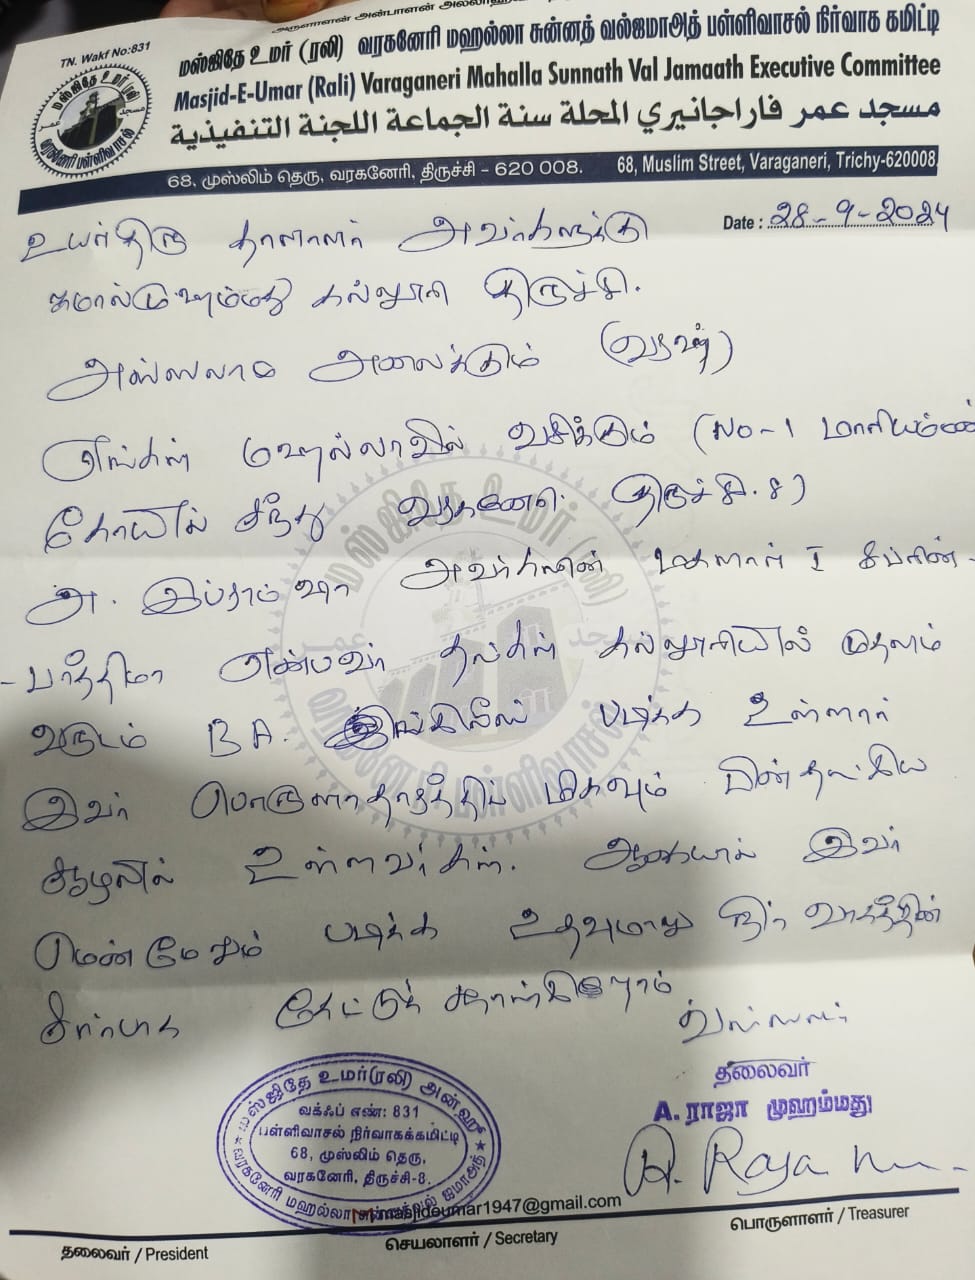 அருளாளன் அன்பாளன்
TN. Wakf No:831
மஸ்ஜிதே உமர் (ரலி) வரகனேரி மஹல்லா சுன்னத் வல்ஜமாஅத் பள்ளிவாசல் நிர்வாக கமிட்டி
Masjid-E-Umar (Rali) Varaganeri Mahalla Sunnath Val Jamaath Executive Committee
مسجد عمر فاراجانيري المحلة سنة الجماعة اللجنة التنفيذية
68, முஸ்லிம் தெரு, வரகனேரி, திருச்சி - 620 008. 68, Muslim Street, Varaganeri, Trichy-620008
Date : 28-9-2024
உயர்திரு தாளாளர் அவர்களுக்கு
ஜமால் முஹம்மது கல்லூரி திருச்சி.
அஸ்ஸலாமு அலைக்கும் (வரஹ்)
எங்கள் மஹல்லாவில் வசிக்கும் (No-1 மாரியம்மன்
கோயில் சந்து வரகனேரி திருச்சி.8)
அ. இப்ராம்ஷா அவர்களின் மகளார் I
பாத்திமா என்பவர் தங்கள் கல்லூரியில் முதலாம்
வருடம் B A. இங்கிலீஸ் படிக்க உள்ளார்
இவர் பொருளாதாரத்தில் மிகவும் பின்தங்கிய
சூழலில் உள்ளவர்கள். ஆகையால் இவர்
மென்மேலும் படிக்க உதவுமாறு நிர்வாகத்தின்
சார்பாக கேட்டுக் கொள்கிறோம்
வஸ்ஸலாம்
தலைவர்
A. ராஜா முஹம்மது
A. Raja
மஸ்ஜிதே உமர்(ரலி)
வக்ஃப் எண்: 831
பள்ளிவாசல் நிர்வாகக்கமிட்டி
68, முஸ்லிம் தெரு,
வரகனேரி, திருச்சி-8.
வரகனேரி மஹல்லா சுன்னத்வல் ஜமாஅத்
masjideumar1947@gmail.com
தலைவர் / President செயலாளர் / Secretary பொருளாளர் / Treasurer